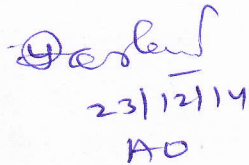 23/12/14
AO